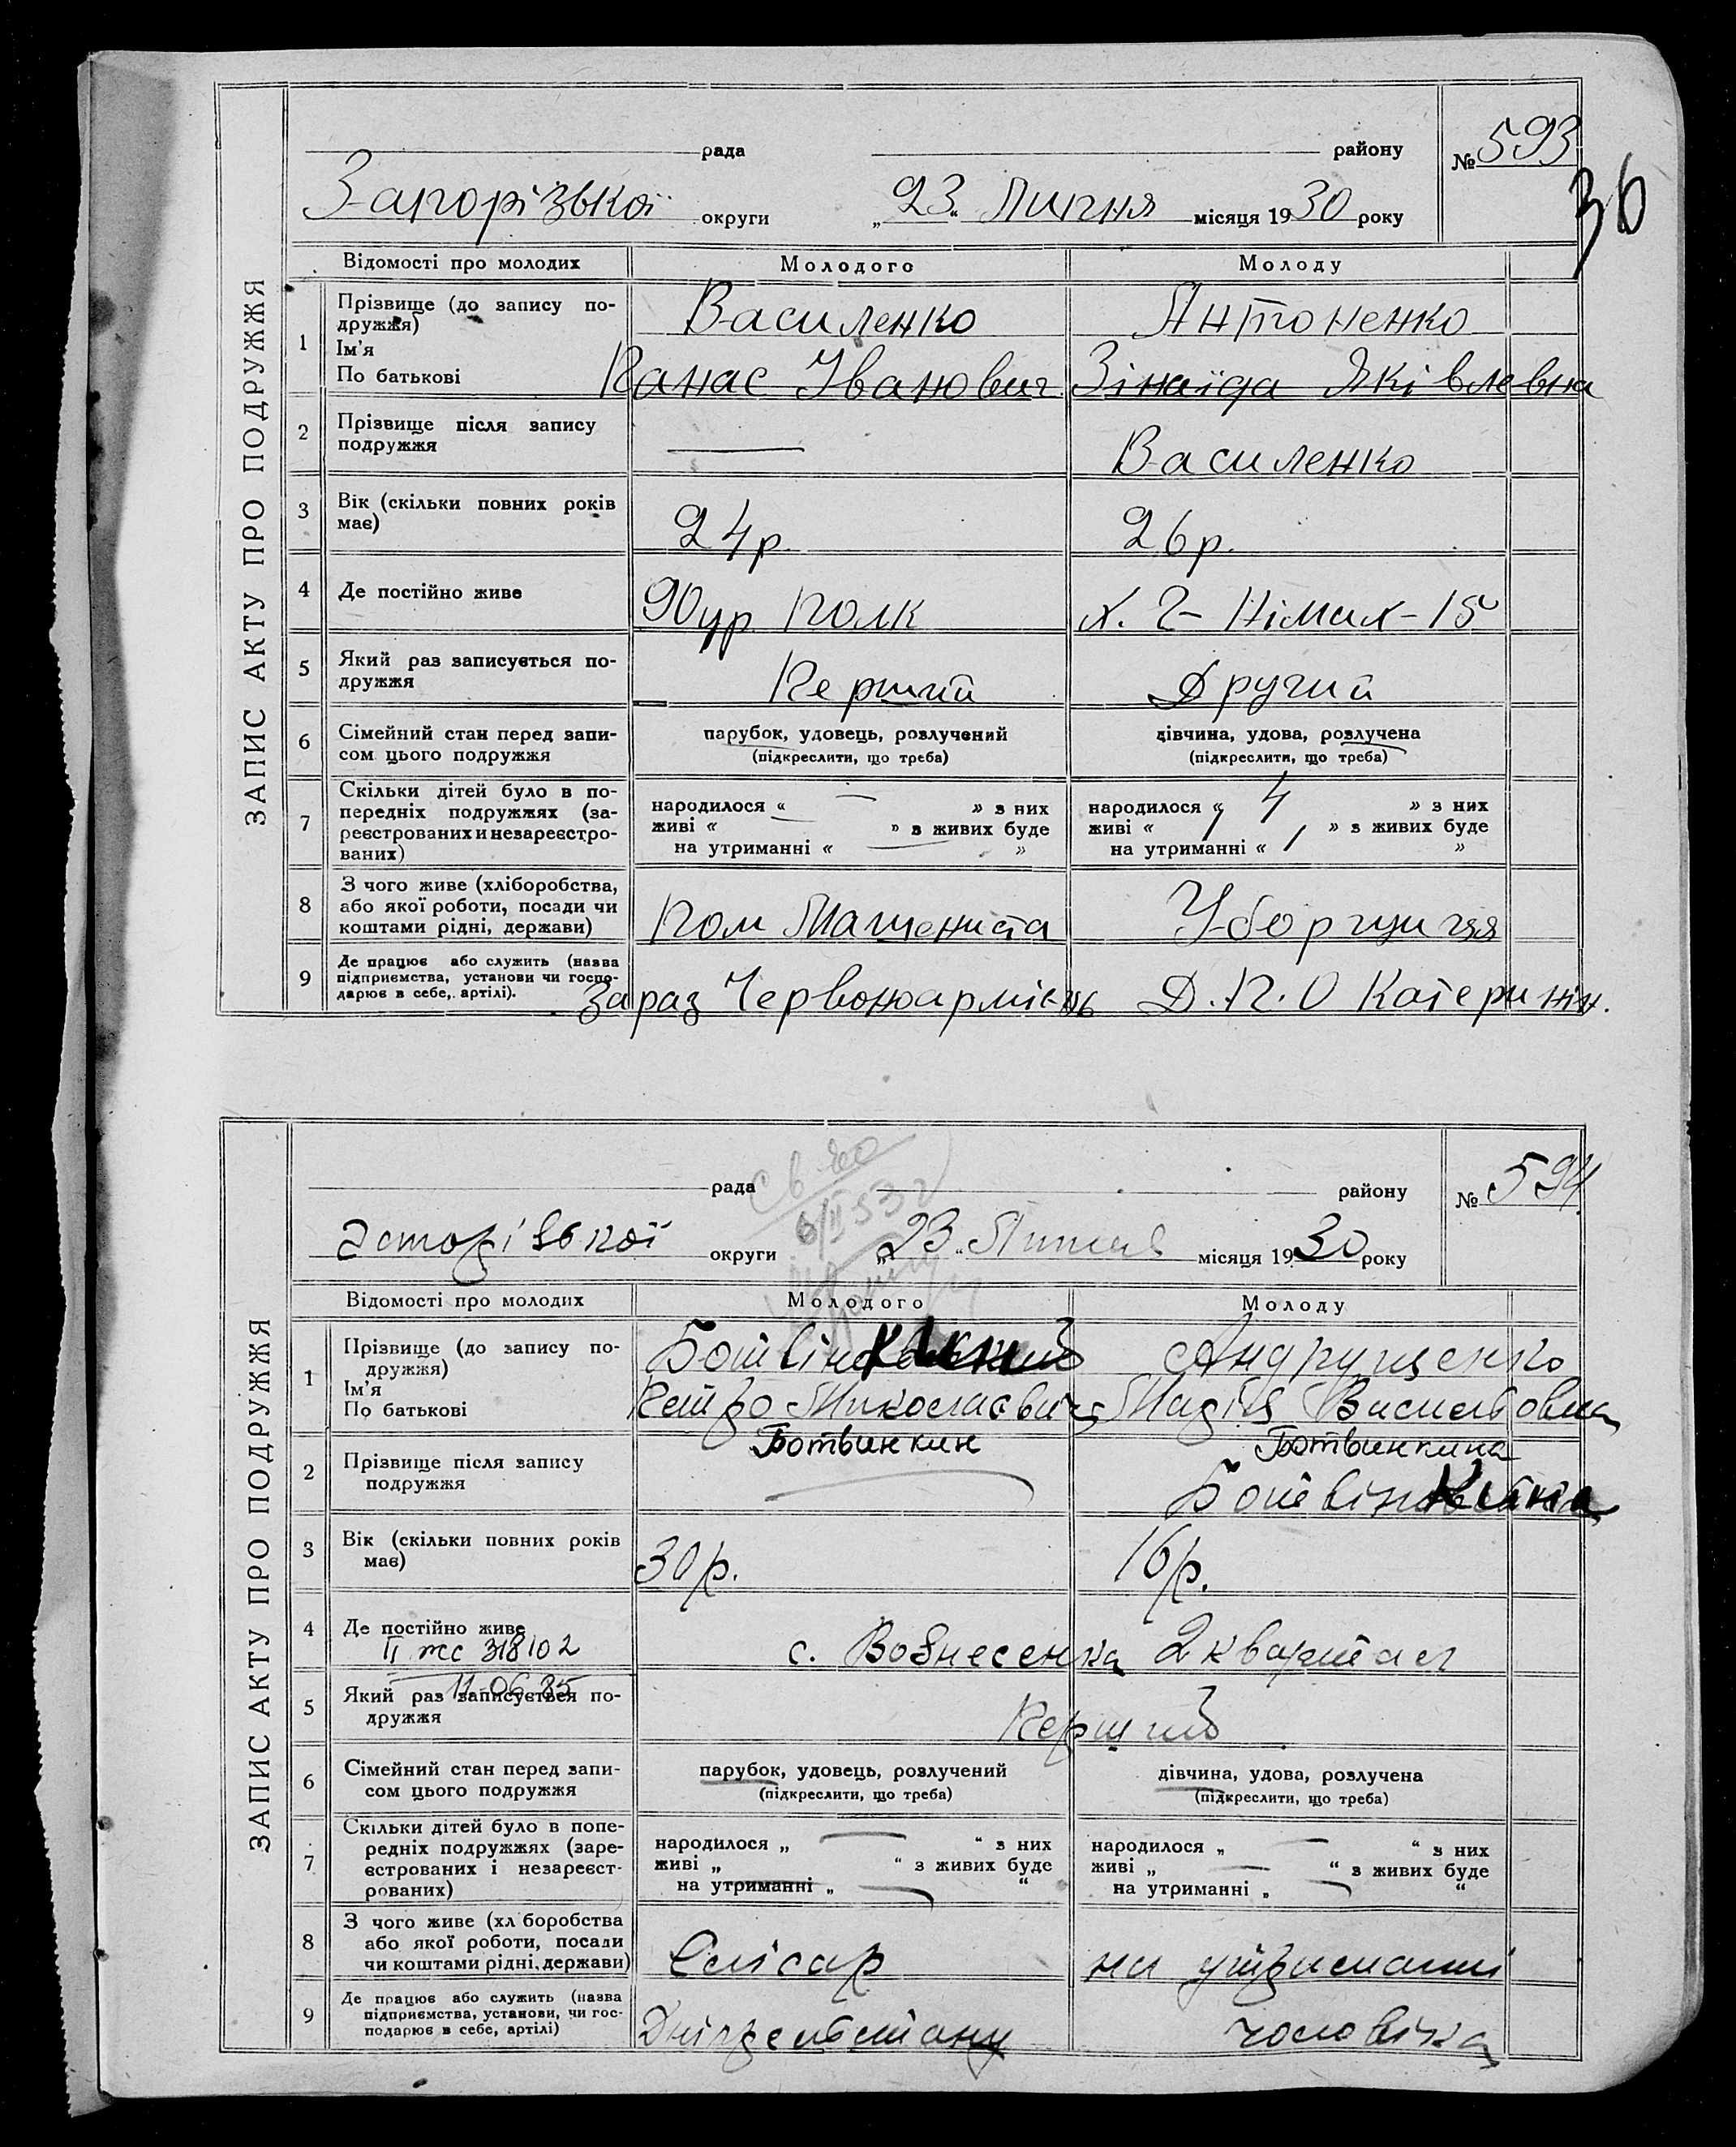 ЗАПИС АКТУ ПРО ПОДРУЖЖЯ
рада району № 593
36
Запорізької округи „23“ Липня місяця 1930 року
Відомості про молодих Молодого Молоду
1 Прізвище (до запису по-
дружжя) Василенко Антоненко
Ім'я
По батькові Панас Іванович Зінаїда Яківлевна
2 Прізвище після запису
подружжя — Василенко
3 Вік (скільки повних років
має) 24р. 26р.
4 Де постійно живе 90 ур. полк
5 Який раз записується по-
дружжя Перший Другий
6 Сімейний стан перед запи-
сом цього подружжя
парубок, удовець, розлучений дівчина, удова, розлучена
(підкреслити, що треба) (підкреслити, що треба)
7 Скільки дітей було в по-
передніх подружжях (за-
реєстрованих и незареєстро-
ваних)
народилося « — » з них народилося « 4 » з них
живі « — » з живих буде живі « 1 » з живих буде
на утриманні « — » на утриманні « 1 »
8 З чого живе (хліборобства,
або якої роботи, посади чи
коштами рідні, держави) Пом Машениста Уборщиця
9 Де працює або служить (назва
підприємства, установи чи госпо-
дарює в себе, артілі). Зараз Червоноармієць Д.П.О Катеринін.
ЗАПИС АКТУ ПРО ПОДРУЖЖЯ
рада району № 594
6/II 53 г
округи „23“ Липня місяця 1930 року
Відомості про молодих Молодого Молоду
1 Прізвище (до запису по-
дружжя) Андрущенко
Ім'я
По батькові Петро Миколаєвич Марія Васильовна
Ботвинкин Ботвинкина
2 Прізвище після запису
подружжя —
3 Вік (скільки повних років
має) 30р. 16р.
4 Де постійно живе с. Вознесенка 2 квартал
II жс 318102
11-06-85
5 Який раз записується по-
дружжя Перший
6 Сімейний стан перед запи-
сом цього подружжя
парубок, удовець, розлучений дівчина, удова, розлучена
(підкреслити, що треба) (підкреслити, що треба)
7 Скільки дітей було в попе-
редніх подружжях (заре-
єстрованих і незареєст-
рованих)
народилося „ — “ з них народилося „ — “ з них
живі „ “ з живих буде живі „ — “ з живих буде
на утриманні „ — “ на утриманні „ — “
8 З чого живе (хл боробства
або якої роботи, посади
чи коштами рідні, держави) Слісар на утриманні
9 Де працює або служить (назва
підприємства, установи, чи гос-
подарює в себе, артілі) Дніпрельстану чоловіка